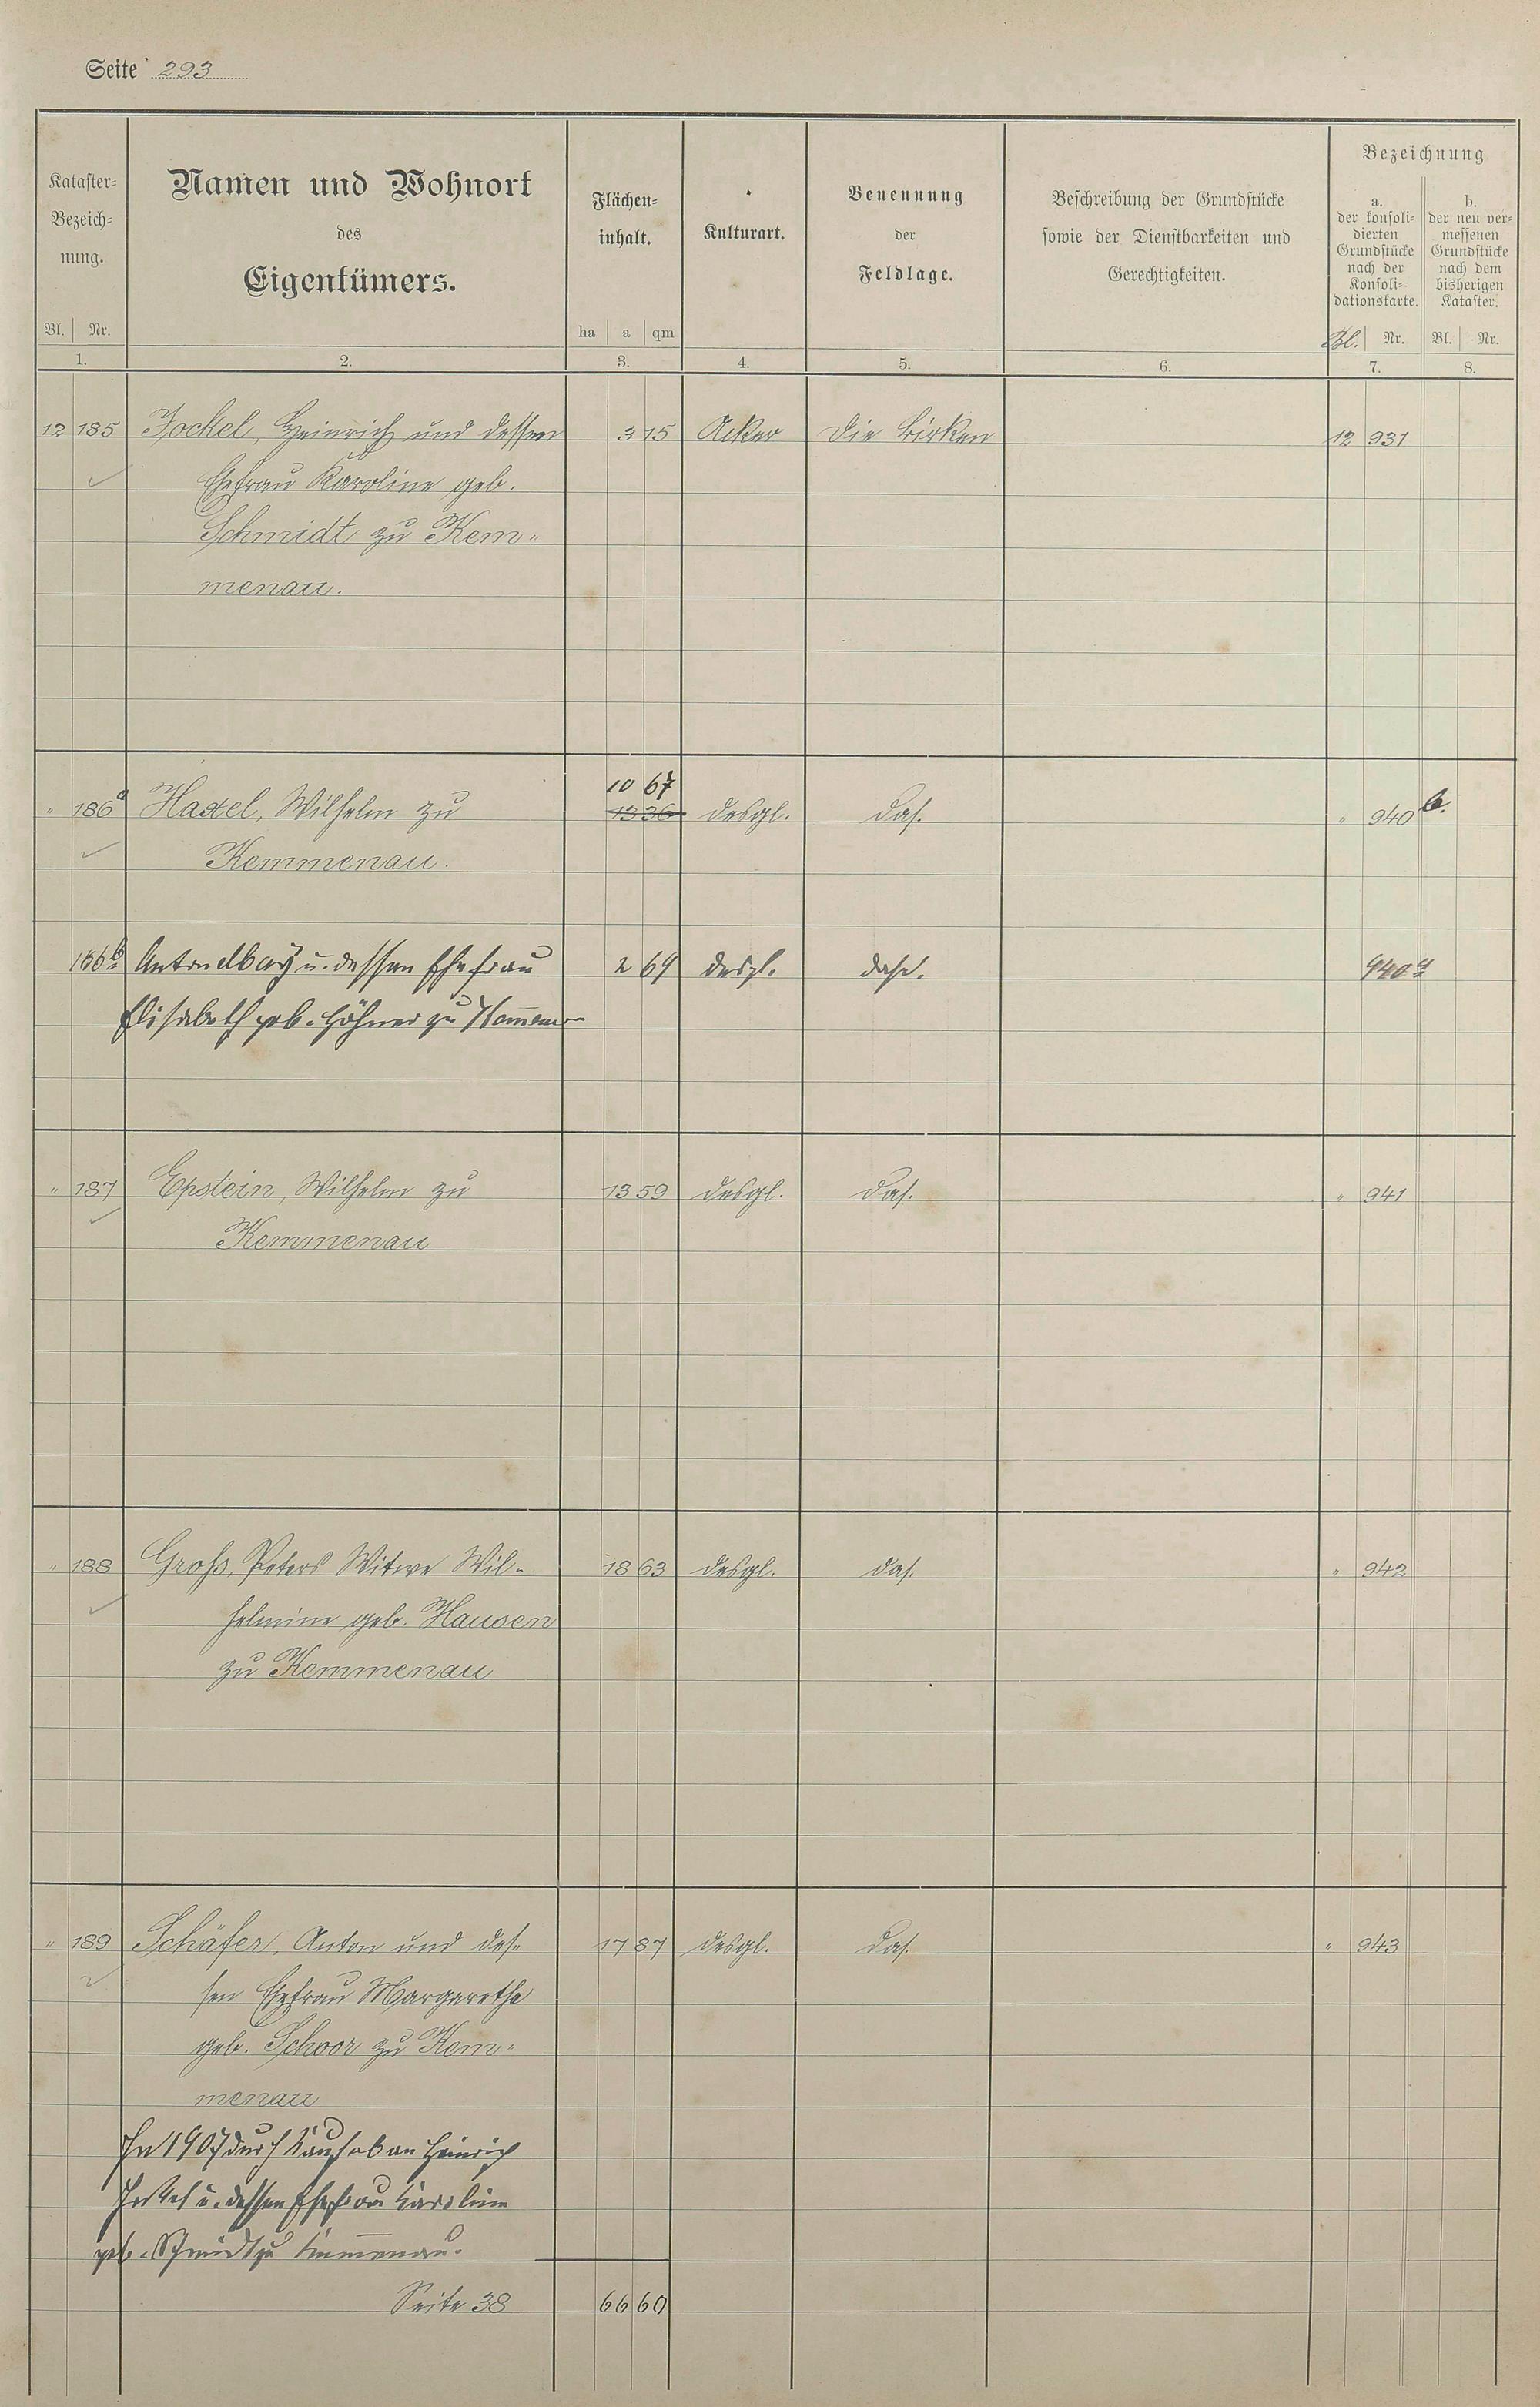 Seite 293
Kataster-Bezeichnung. Bl. Nr. 1.
Namen und Wohnort des Eigentümers. 2.
Flächeninhalt. ha a qm 3.
Kulturart. 4.
Benennung der Feldlage. 5.
Beschreibung der Grundstücke sowie der Dienstbarkeiten und Gerechtigkeiten. 6.
Bezeichnung
a. der konsolidierten Grundstücke nach der Konsolidationskarte. Bl. Nr. 7.
b. der neu vermessenen Grundstücke nach dem bisherigen Kataster. Bl. Nr. 8.
12 185 Jockel, Heinrich und dessen 3 15 Acker Die Birken 12 931
Ehefrau Karoline geb.
Schmidt zu Kem-
menau.
10 67
" 186a Haxel, Wilhelm zu 13 36 desgl. das. " 940 b.
Kemmenau.
186b Anton u. dessen Ehefrau 2 69 desgl. das. 940a
Elisabeth geb. Höhner zu
" 187 Epstein, Wilhelm zu 13 59 desgl. das. " 941
Kemmenau
" 188 Groß, Peters Witwe Wil- 18 63 desgl. das. " 942
helmine geb. Hausen
zu Kemmenau
" 189 Schäfer, Anton und des- 17 87 desgl. das. " 943
sen Ehefrau Margarethe
geb. Schoor zu Kem-
menau
In 1907 durch Kauf ab an Heinrich
Jockel u. dessen Ehefrau Karoline
geb. Schmidt zu Kemmenau.
Seite 38 66 60